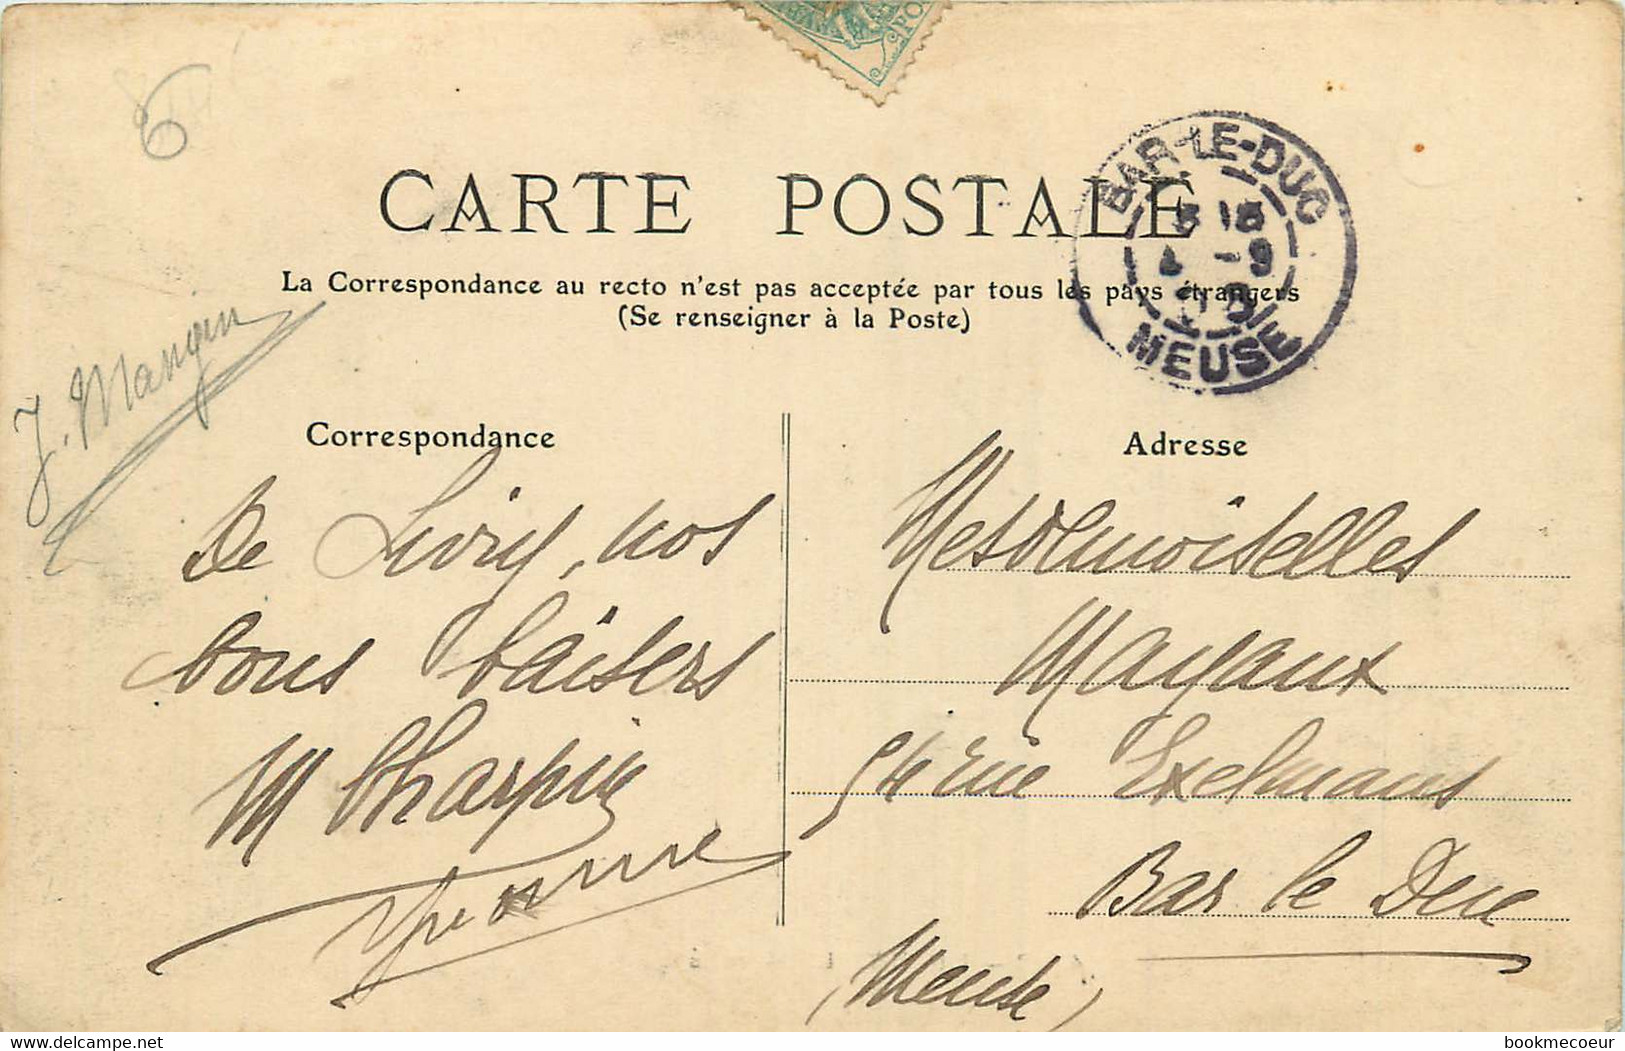 6
CARTE POSTALE
La Correspondance au recto n'est pas acceptée par tous les pays étrangers
(Se renseigner à la Poste)
BAR-LE-DUC
MEUSE
J. Mangin
Correspondance
De Livry, nos
bons baisers
M Charpin
Yvonne
Adresse
Mesdemoiselles
Mayaux
rue Exelmans
Bar le Duc
(Meuse)
bookmecoeur